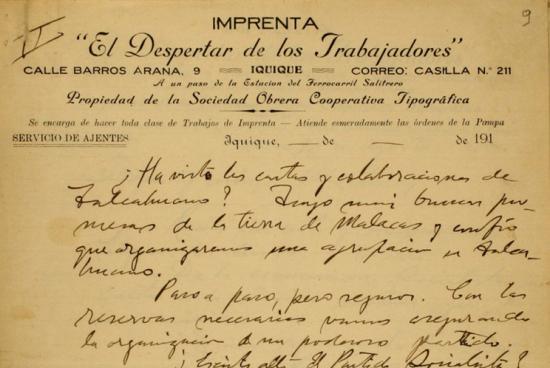 9
IMPRENTA
"El Despertar de los Trabajadores"
CALLE BARROS ARANA, 9 IQUIQUE CORREO: CASILLA N.° 211
A un paso de la Estacion del Ferrocarril Salitrero
Propiedad de la Sociedad Obrera Cooperativa Tipográfica
Se encarga de hacer toda clase de Trabajos de Imprenta — Atiende esmeradamente las órdenes de la Pampa
SERVICIO DE AJENTES
Iquique, — de — de 191
¿Ha visto las cartas y colaboraciones de
Talcahuano? Tengo muy buenas pro-
mesas de la tierra de Malacas y confío
que organizaremos una agrupacion en Talca-
huano.
Paso a paso, pero seguros. Con las
reservas necesarias vamos asegurando
la organizacion de un poderoso partido.
el Partido Socialista?